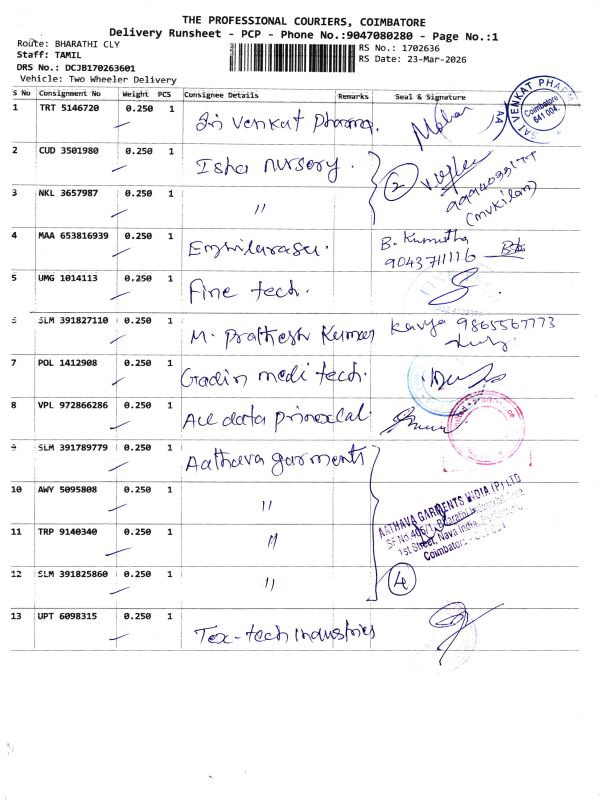 THE PROFESSIONAL COURIERS, COIMBATORE
Delivery Runsheet - PCP - Phone No.:9047080280 - Page No.:1
Route: BHARATHI CLY
RS No.: 1702636
Staff: TAMIL
RS Date: 23-Mar-2026
DRS No.: DCJB170263601
Vehicle: Two Wheeler Delivery
S No Consignment No Weight PCS Consignee Details Remarks Seal & Signature
1 TRT 5146720 0.250 1 Sri Venkat Pharma.
SAI VENKAT PHARMA
Coimbatore
641 004.
2 CUD 3501980 0.250 1 Isha nursery. 2
3 NKL 3657987 0.250 1 "
(mukilan)
4 MAA 653816939 0.250 1 Ezhilarasu. B. Kumutha
9043711116
5 UMG 1014113 0.250 1 Fine tech.
6 SLM 391827110 0.250 1 M. Prathesh Kumar Kavya 9865567773
7 POL 1412908 0.250 1 Gadin medi tech.
8 VPL 972866286 0.250 1 Ace data
9 SLM 391789779 0.250 1 Aathava garments
10 AWY 5095808 0.250 1 "
AATHAVA GARMENTS INDIA (P) LTD
SF.No.405/1, Bharathi
1st Street, Nava India,
Coimbatore
11 TRP 9140340 0.250 1 "
12 SLM 391825860 0.250 1 " 4
13 UPT 6098315 0.250 1 Tex-tech industries